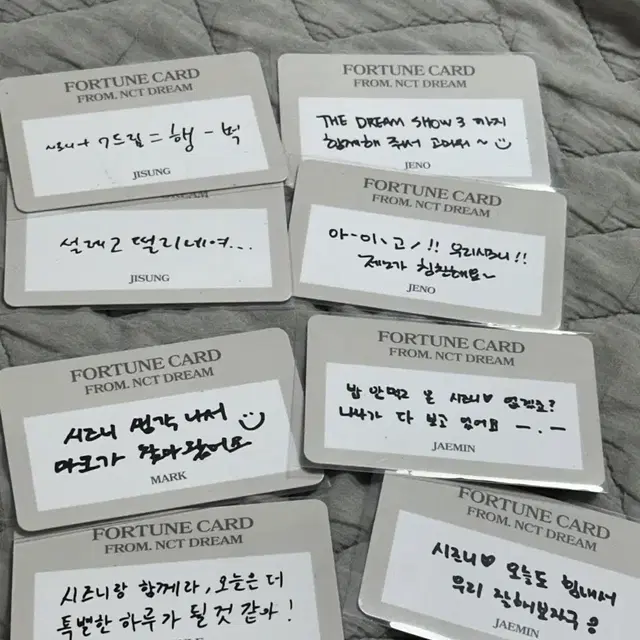 FORTUNE CARD
FROM. NCT DREAM
시즈니 + 7드림 = 행-벅
JISUNG
설레고 떨리네여...
JISUNG
FORTUNE CARD
FROM. NCT DREAM
시즈니 생각 나서
마크가 찾아왔어요
MARK
FORTUNE CARD
FROM. NCT DREAM
시즈니랑 함께라, 오늘은 더
특별한 하루가 될 것 같아!
FORTUNE CARD
FROM. NCT DREAM
THE DREAM SHOW 3 까지
함께해 줘서 고마워~
JENO
FORTUNE CARD
FROM. NCT DREAM
아-이고!! 우리시즈니!!
제노가 칭찬해요~
JENO
FORTUNE CARD
FROM. NCT DREAM
밥 안먹고 온 시즈니♡ 없겠죠?
나나가 다 보고 있어요 ㅡ.ㅡ
JAEMIN
FORTUNE CARD
FROM. NCT DREAM
시즈니♡ 오늘도 힘내서
우리 잘해보자구
JAEMIN